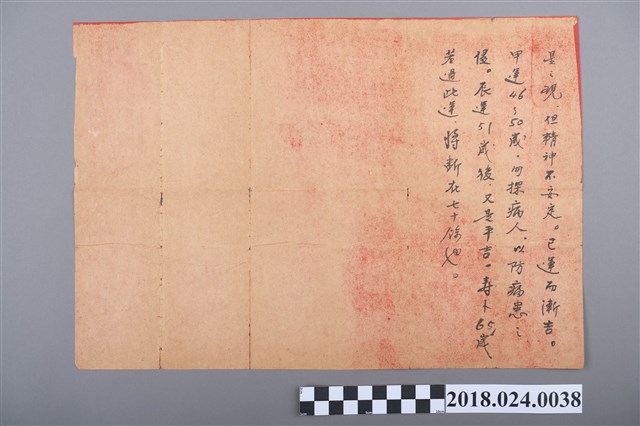 星之現，但精神不安定。已運而漸吉。
甲運46～50歲，勿探病人，以防病患之
侵。辰運51歲後，又是平吉。壽卜65歲
若過此運，將斷在七十餘也。
2018.024.0038